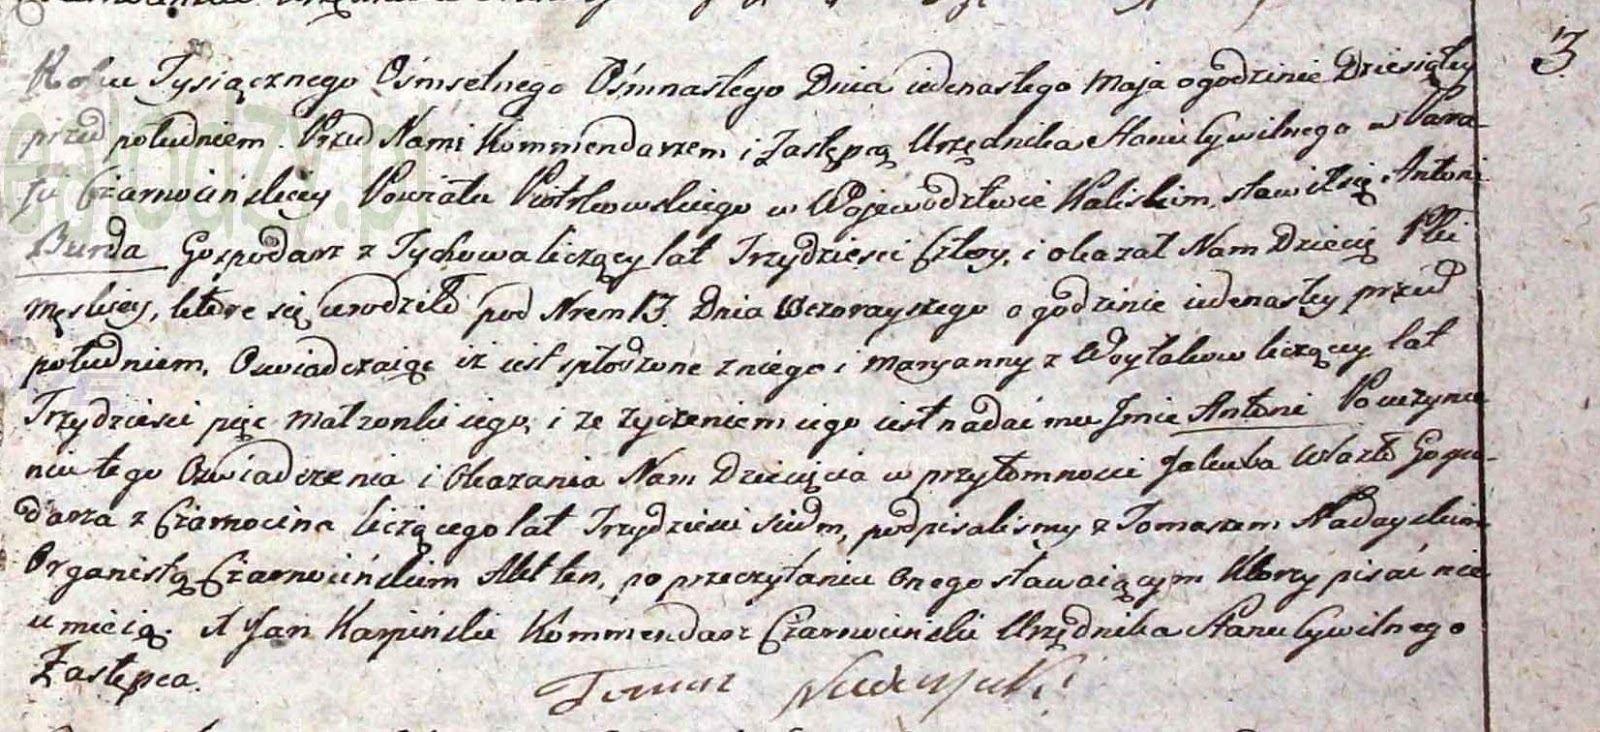 Roku Tysiącznego Ośmsetnego Ośmnastego Dnia iedenastego Maja o godzinie Dziesiątey
przed południem. Przed Nami Kommendarzem i Zastępcą Urzędnika Stanu Cywilnego w Para-
fii Czarnocińskiey Powiatu Piotrkowskiego w Wojewodztwie Kaliskim, stawił się Antoni
Burda Gospodarz z Tychowa liczący lat Trzydzieści Cztery, i okazał Nam Dziecię Płci
męskiey, które się urodziło pod Nrem 13. Dnia Wczorayszego o godzinie iedenastey przed
południem, Oswiadczaiąc iż iest spłodzone z niego i Maryanny z Woytalow liczącey lat
Trzydzieści pięc Małżonki iego, i że życzeniem iego iest nadać mu Jmie Antoni Po uczynie-
niu tego Oswiadczenia i Okazania Nam Dziecięcia w przytomności Jakuba Wlazło Gospo-
darza z Czarnocina liczącego lat Trzydzieści siedm, podpisaliśmy z Tomaszem Nadayskim
Organistą Czarnocińskim Akt ten, po przeczytaniu onego stawaiącym Którzy pisać nie
umieią. X Jan Karpiński Kommendarz Czarnociński Urzędnika Stanu Cywilnego
Zastępca.
3